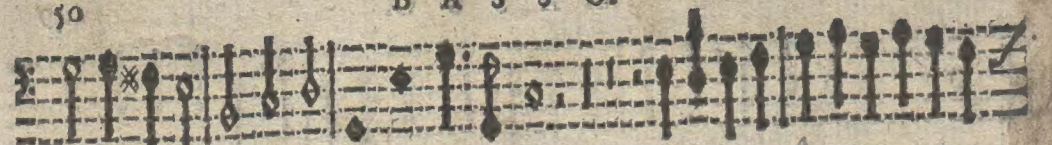 50
B A S S O.